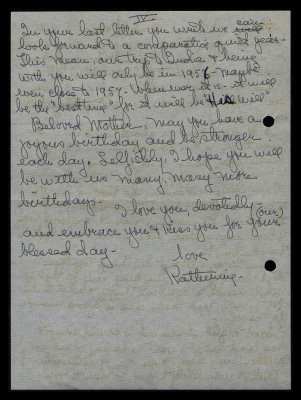 IV
In your last letter you write we can
look forward to a comparative quiet year.
This means, our trip to India & being
with you, will only be in 1956 - maybe
even close to 1957. Whenever it is - it will
be the "best time" for it will be "His will"
Beloved Mother, may you have a
joyous birthday and be stronger
each day. Selfishly, I hope you will
be with us many, many more
birthdays.
I love you, devotedly
and embrace you & kiss you for your (our)
blessed day -
Love